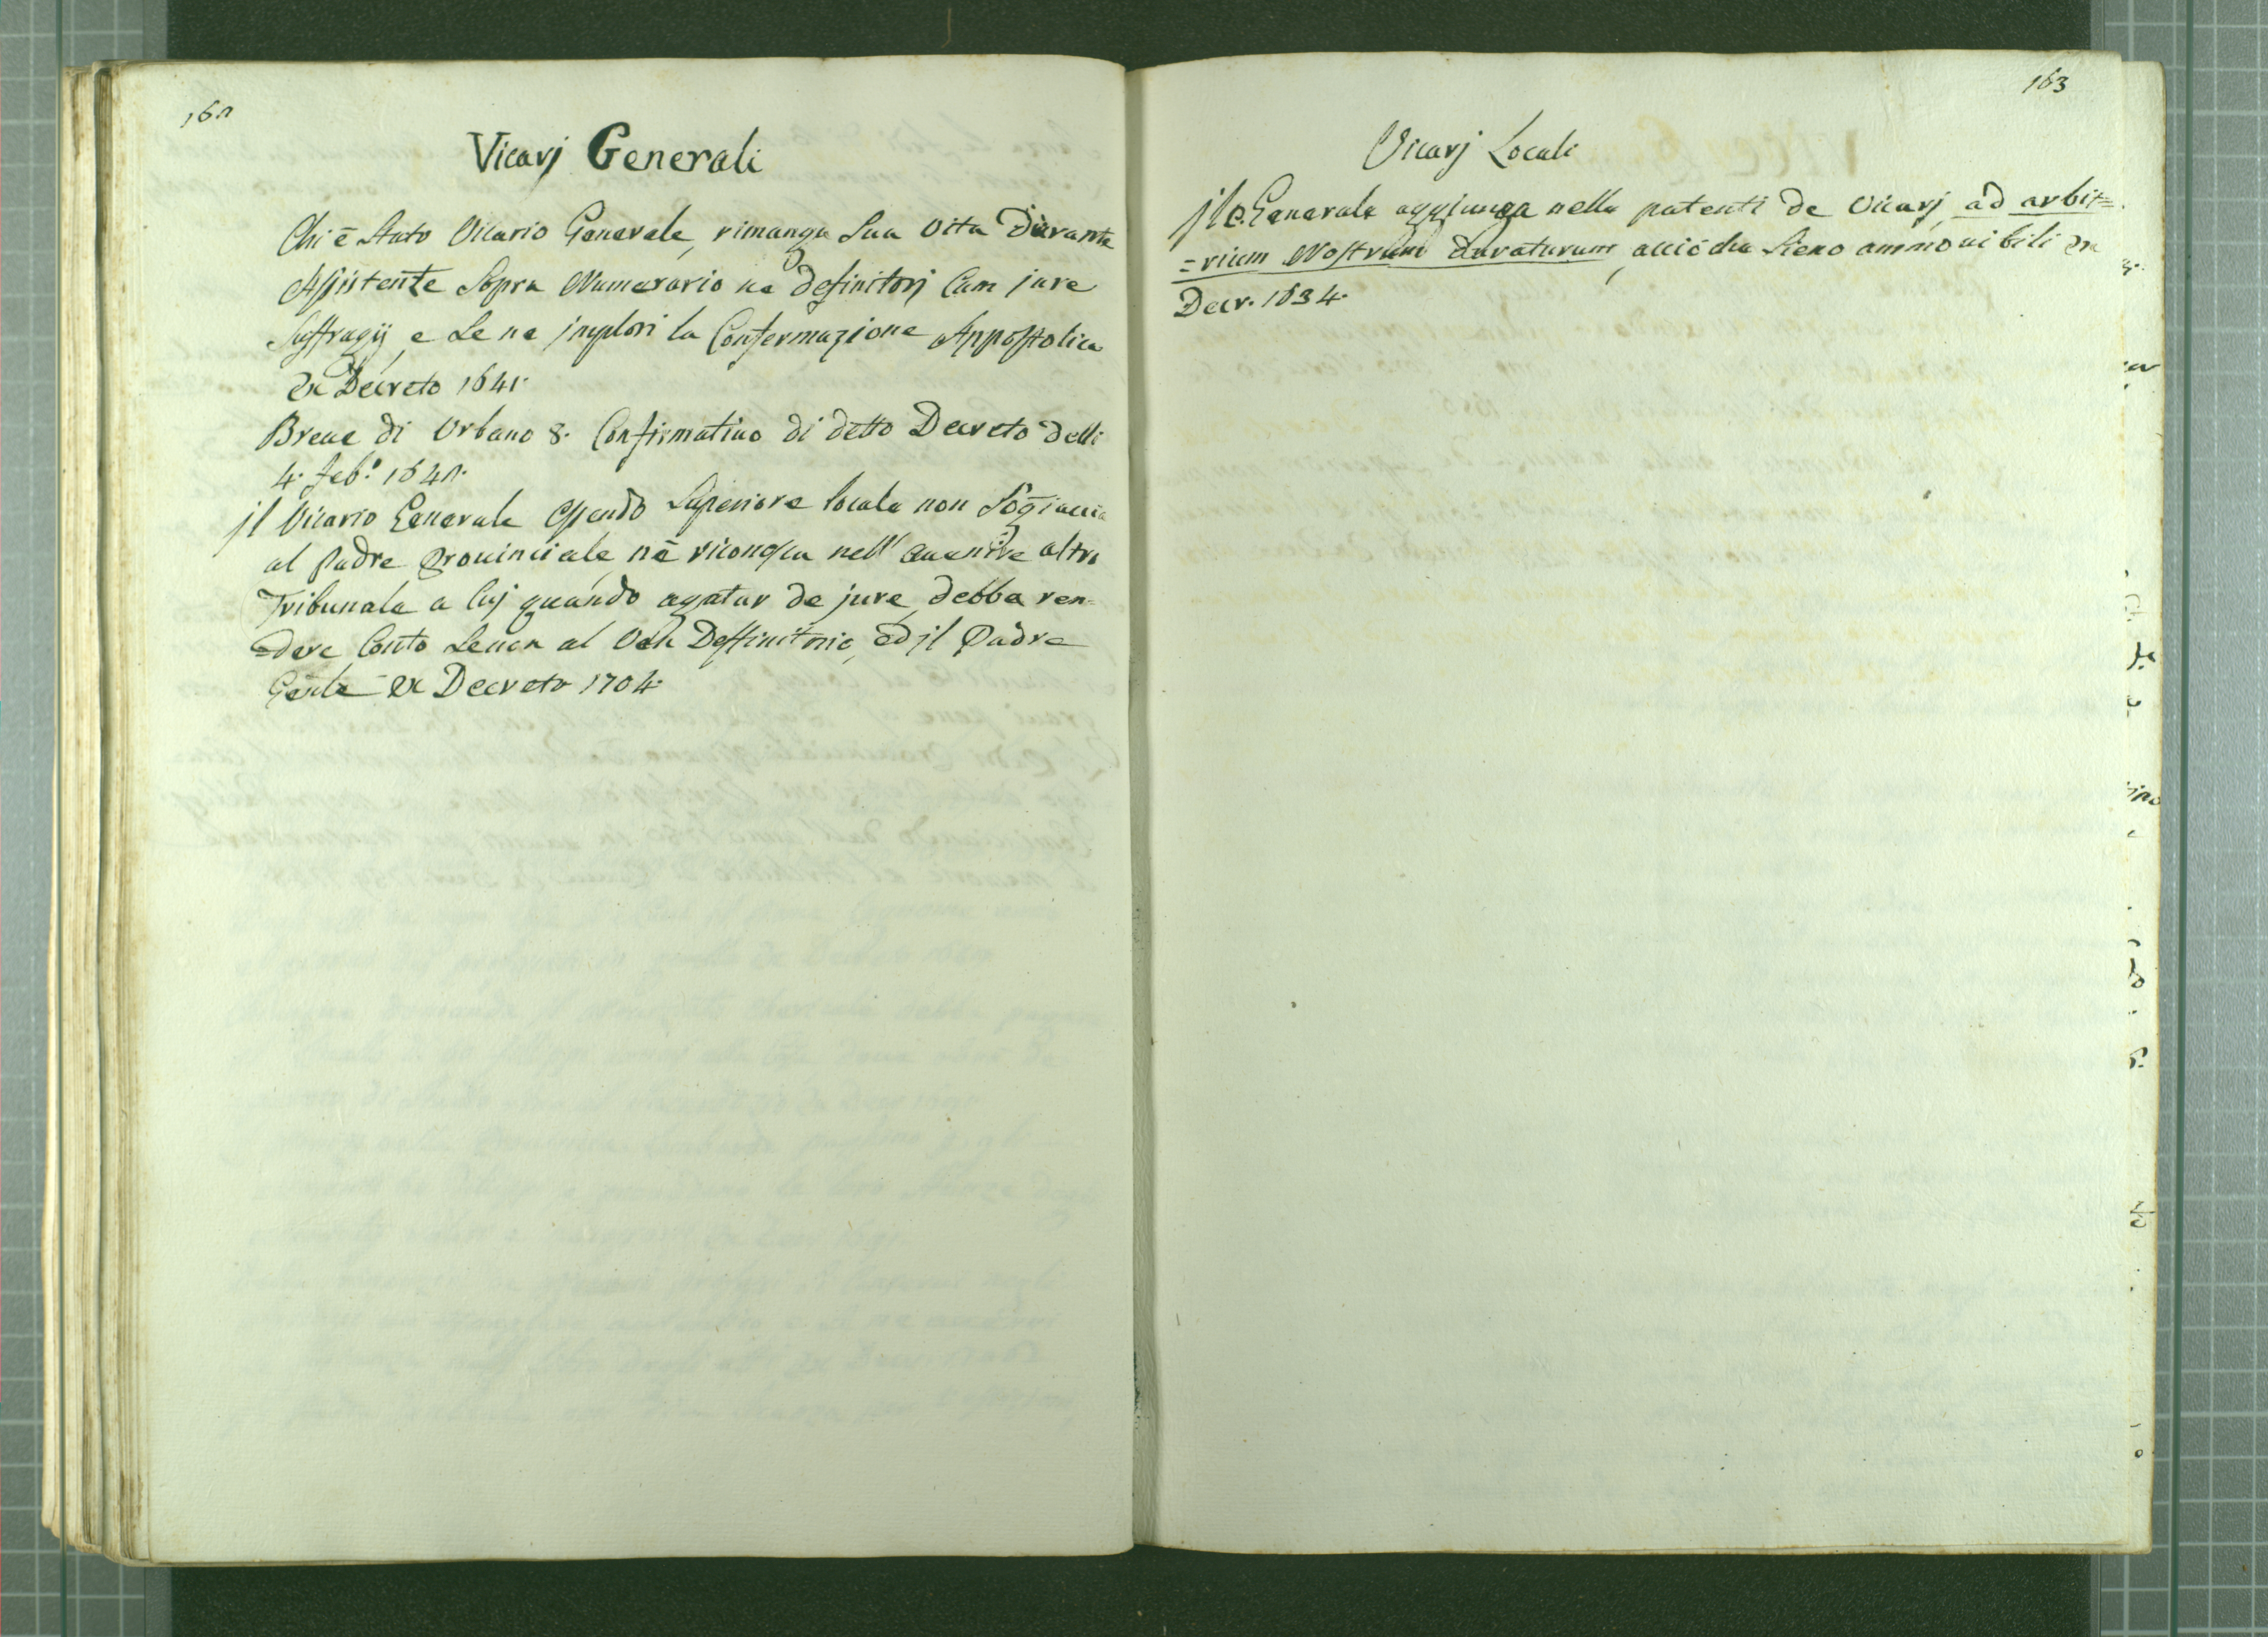 162
Vicarj Generali
Chi è stato Vicario Generale, rimanga sua vita durante
Assistente sopra Numerario ne definitorj cum jure
suffragij, e se ne implori la Confermazione Appostolica
ex Decreto 1641.
Breue di Vrbano 8. Confirmatiuo di detto Decreto delli
4. feb.º 1642.
jl Vicario Generale essendo Superiore locale non sogiaccia
al Padre Prouinciale nè riconosca nell' auenire altro
Tribunale a cuj quando agatur de jure, debba ren=
=dere Conto senon al Ven Deffinitorio, ed jl Padre
Genle ex Decreto 1704.
163
Vicarj Locali
jl P. Generale aggiunga nelle patenti de Vicarj, ad arbit=
=rium Nostrum duraturum, acciò che sieno ammouibili ex
Decr. 1634.